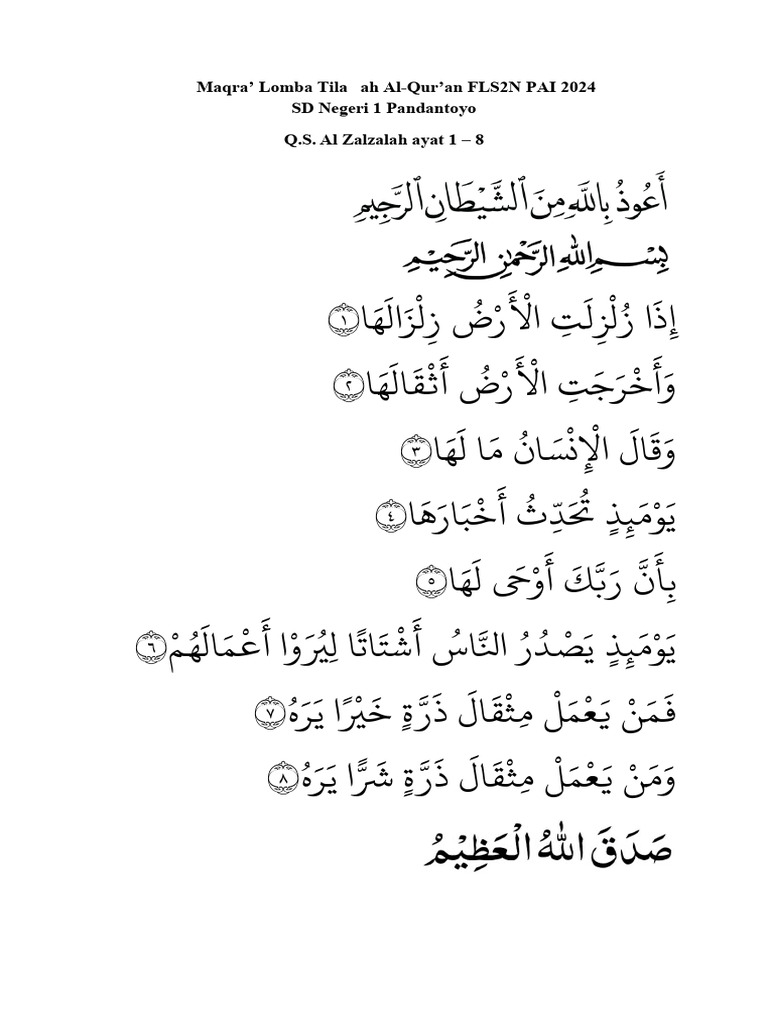 Maqra’ Lomba Tila ah Al-Qur’an FLS2N PAI 2024
SD Negeri 1 Pandantoyo
Q.S. Al Zalzalah ayat 1 – 8
أَعُوذُ بِاللَّهِ مِنَ ٱلشَّيْطَانِ ٱلرَّجِيمِ
بِسْمِ اللهِ الرَّحْمٰنِ الرَّحِيْمِ
إِذَا زُلْزِلَتِ الْأَرْضُ زِلْزَالَهَا ١
وَأَخْرَجَتِ الْأَرْضُ أَثْقَالَهَا ٢
وَقَالَ الْإِنْسَانُ مَا لَهَا ٣
يَوْمَئِذٍ تُحَدِّثُ أَخْبَارَهَا ٤
بِأَنَّ رَبَّكَ أَوْحَى لَهَا ٥
يَوْمَئِذٍ يَصْدُرُ النَّاسُ أَشْتَاتًا لِيُرَوْا أَعْمَالَهُمْ ٦
فَمَنْ يَعْمَلْ مِثْقَالَ ذَرَّةٍ خَيْرًا يَرَهُ ٧
وَمَنْ يَعْمَلْ مِثْقَالَ ذَرَّةٍ شَرًّا يَرَهُ ٨
صَدَقَ اللهُ الْعَظِيْمُ